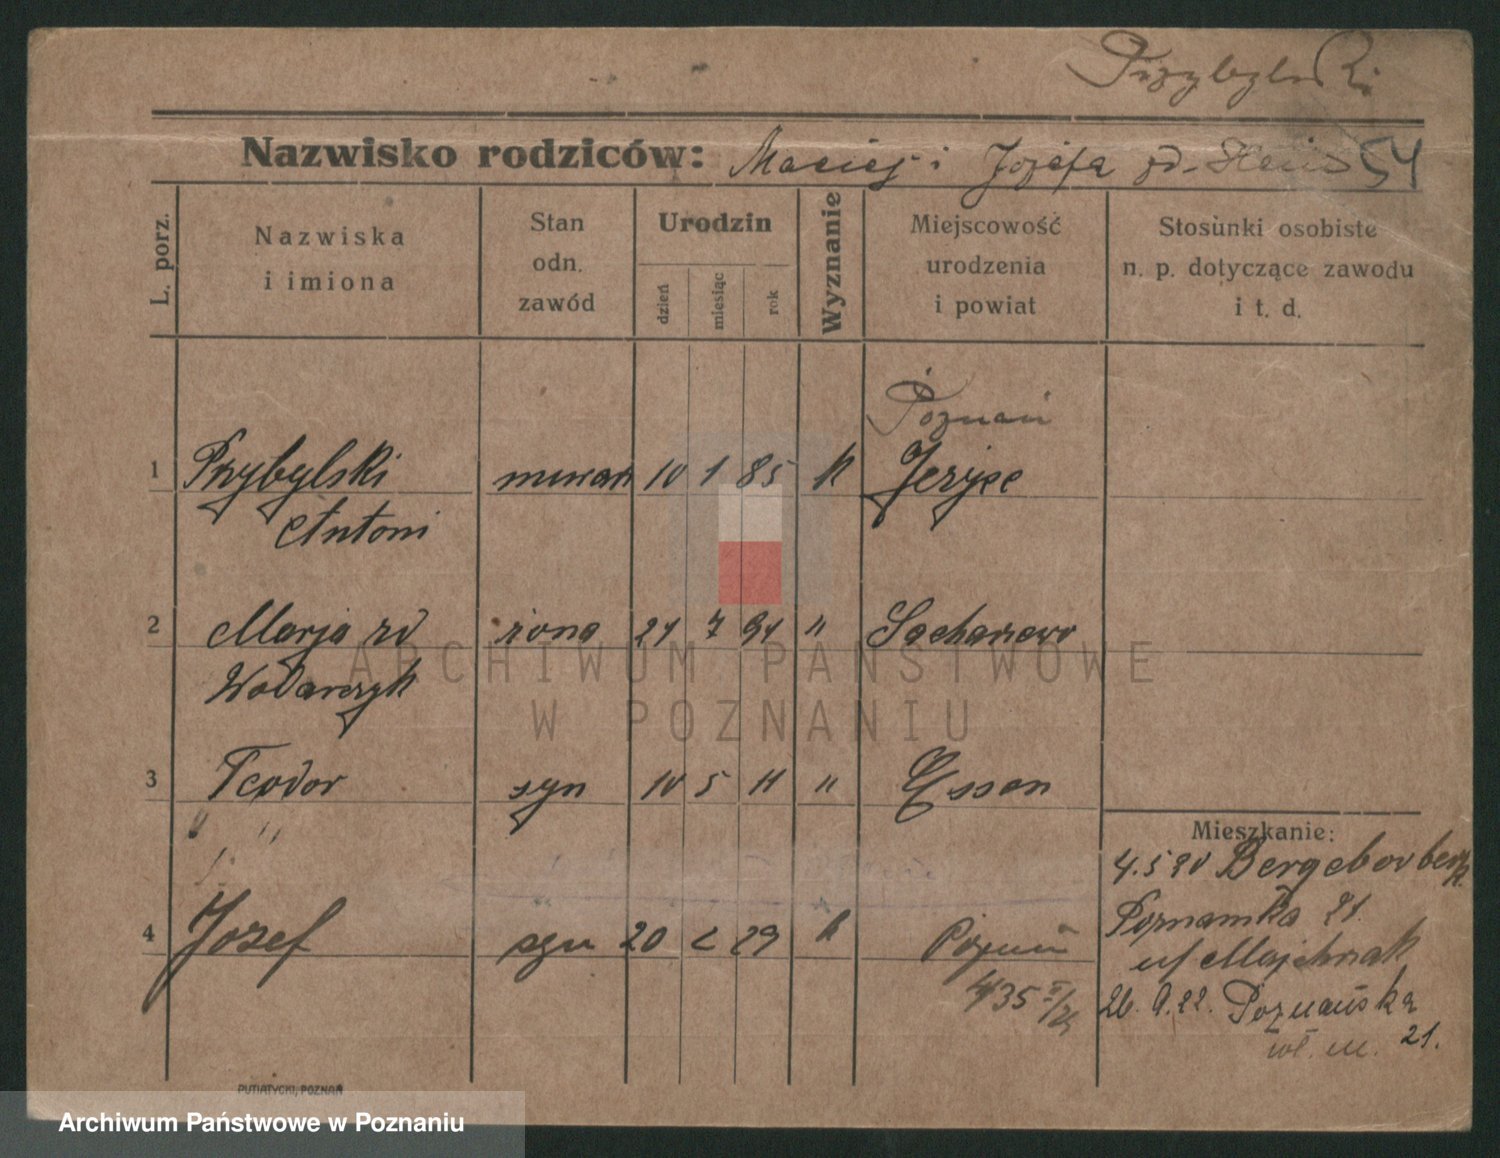 Przybylski
Nazwisko rodziców: Maciej i Józefa zd. 54
L. porz.
Nazwiska
i imiona
Stan
odn.
zawód
Urodzin
dzień
miesiąc
rok
Wyznanie
Miejscowość
urodzenia
i powiat
Stosunki osobiste
n. p. dotyczące zawodu
i t. d.
Poznań
1 Przybylski murarz 10 1 85 k Jeżyce
Antoni
2 Marja zd żona 7 94 "
Wodarczyk
3 Teodor syn 10 5 11 " Essen
" "
Mieszkanie:
4.5 20
4 Józef syn 20 2 29 k Poznań
Poznańska 21.
u/ Majchrzak
26. 9. 22. Poznańska
wł. m. 21.
PUTIATYCKI, POZNAŃ
ARCHIWUM PAŃSTWOWE
W POZNANIU
Archiwum Państwowe w Poznaniu